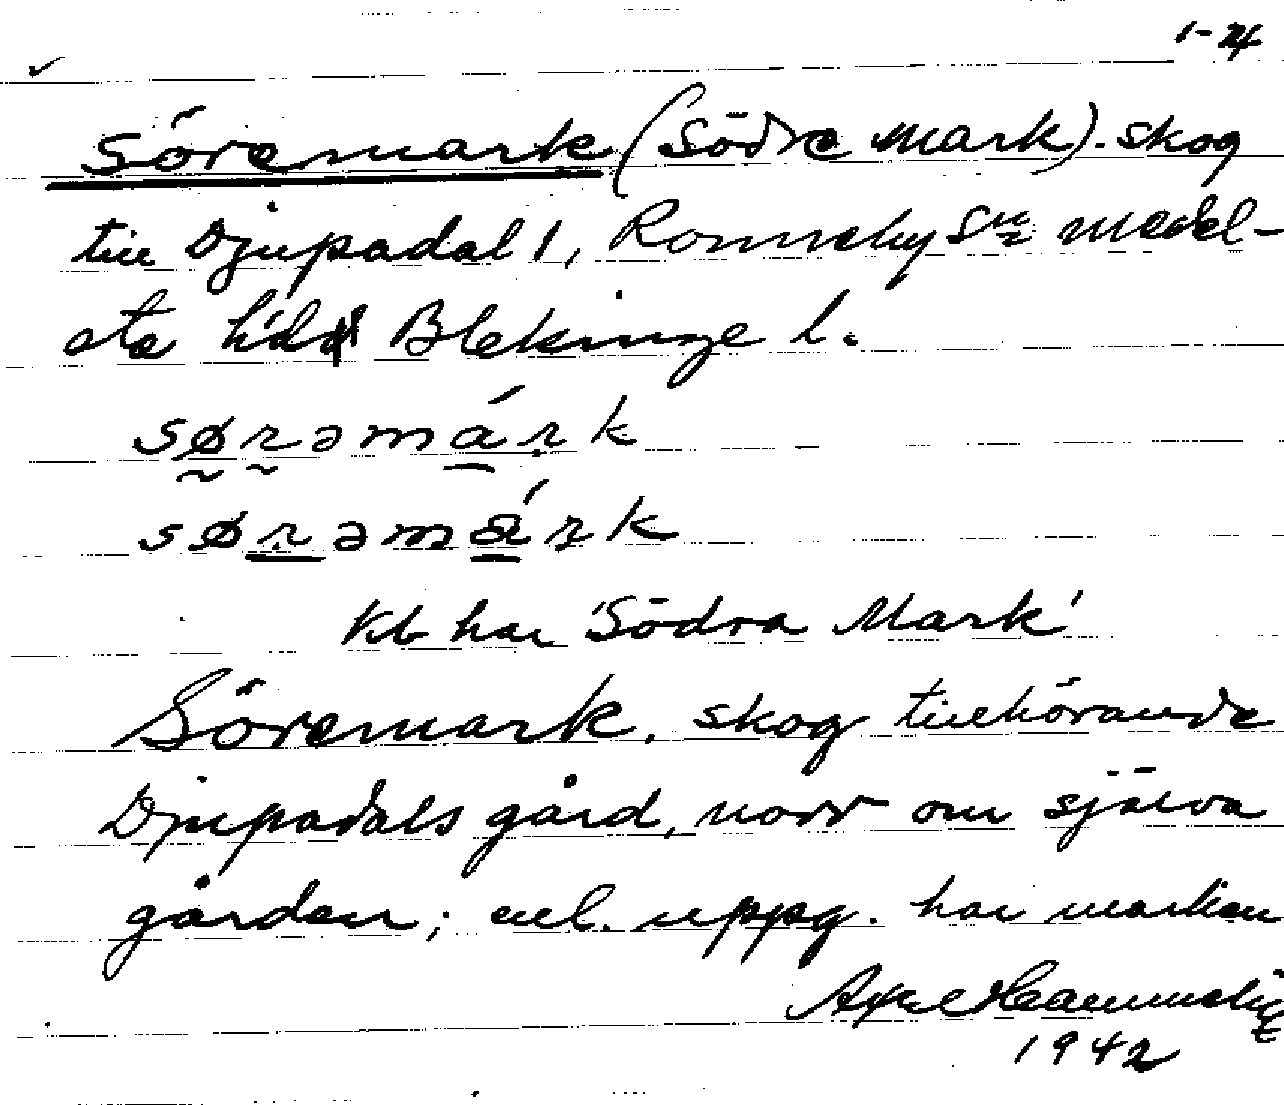 1-24
Söremark (Södre Mark). skog
till Djupadal 1, Ronneby Sn Medel-
sta hd Blekinge l.
sørəmárk
sørəmárk
Kb har 'Södra Mark'
Söremark. skog tillhörande
Djupadals gård, norr om själva
gården; enl. uppg. har marken
Axel
1942